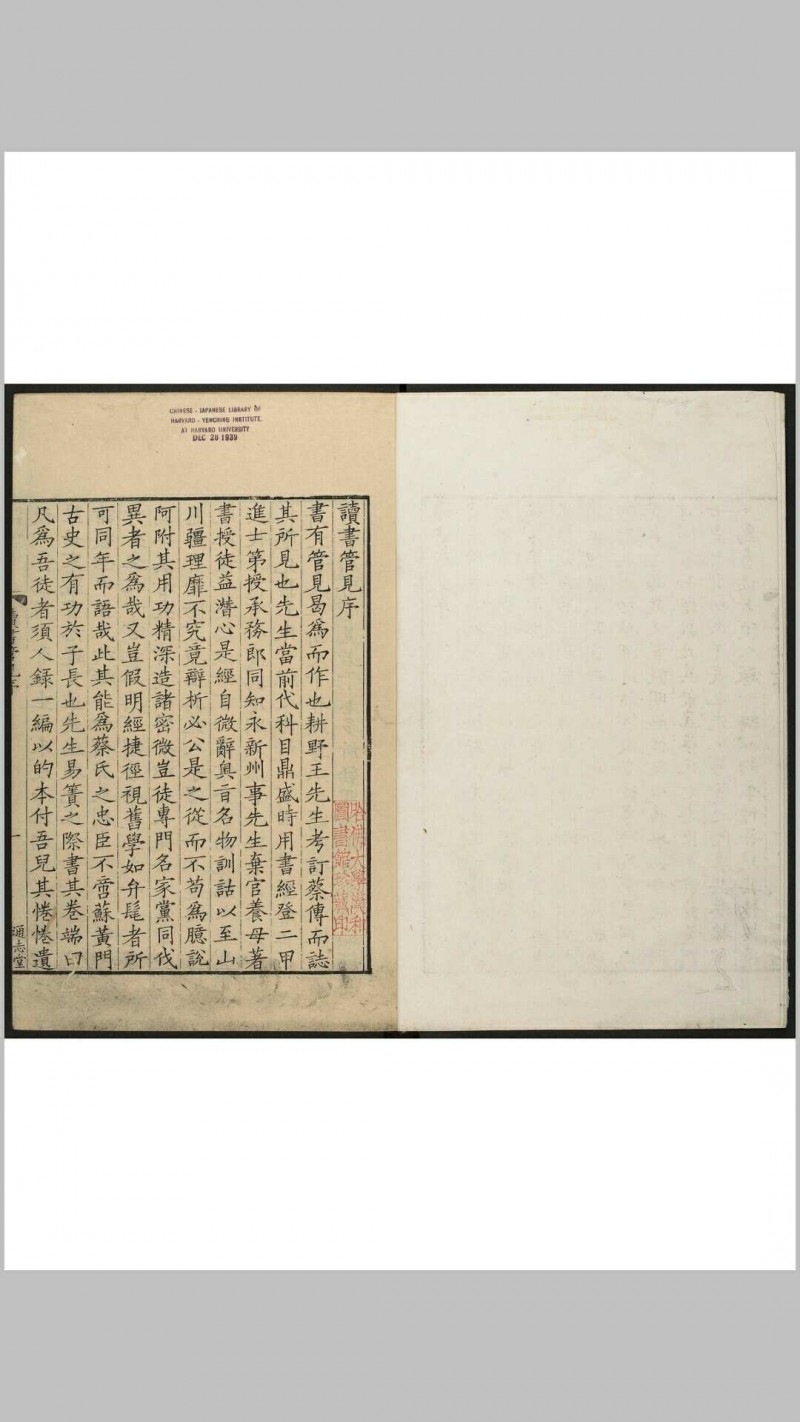 CHINESE - JAPANESE LIBRARY OF
HARVARD - YENCHING INSTITUTE
AT HARVARD UNIVERSITY
DEC 28 1939
讀書管見序
書有管見曷爲而作也耕野王先生考訂蔡傳而誌
其所見也先生當前代科目鼎盛時用書經登二甲
進士第授承務郎同知永新州事先生棄官養母著
書授徒益潛心是經自微辭奥旨名物訓詁以至山
川疆理靡不究竟辯析必公是之從而不苟爲臆說
阿附其用功精深造諸密微豈徒專門名家黨同伐
異者之爲哉又豈假明經捷徑視舊學如弁髦者所
可同年而語哉此其能爲蔡氏之忠臣不啻蘇黄門
古史之有功於子長也先生易簀之際書其卷端曰
凡爲吾徒者須人錄一編以的本付吾兒其惓惓遺
一
通志堂
哈佛大學漢和
圖書館珍藏印